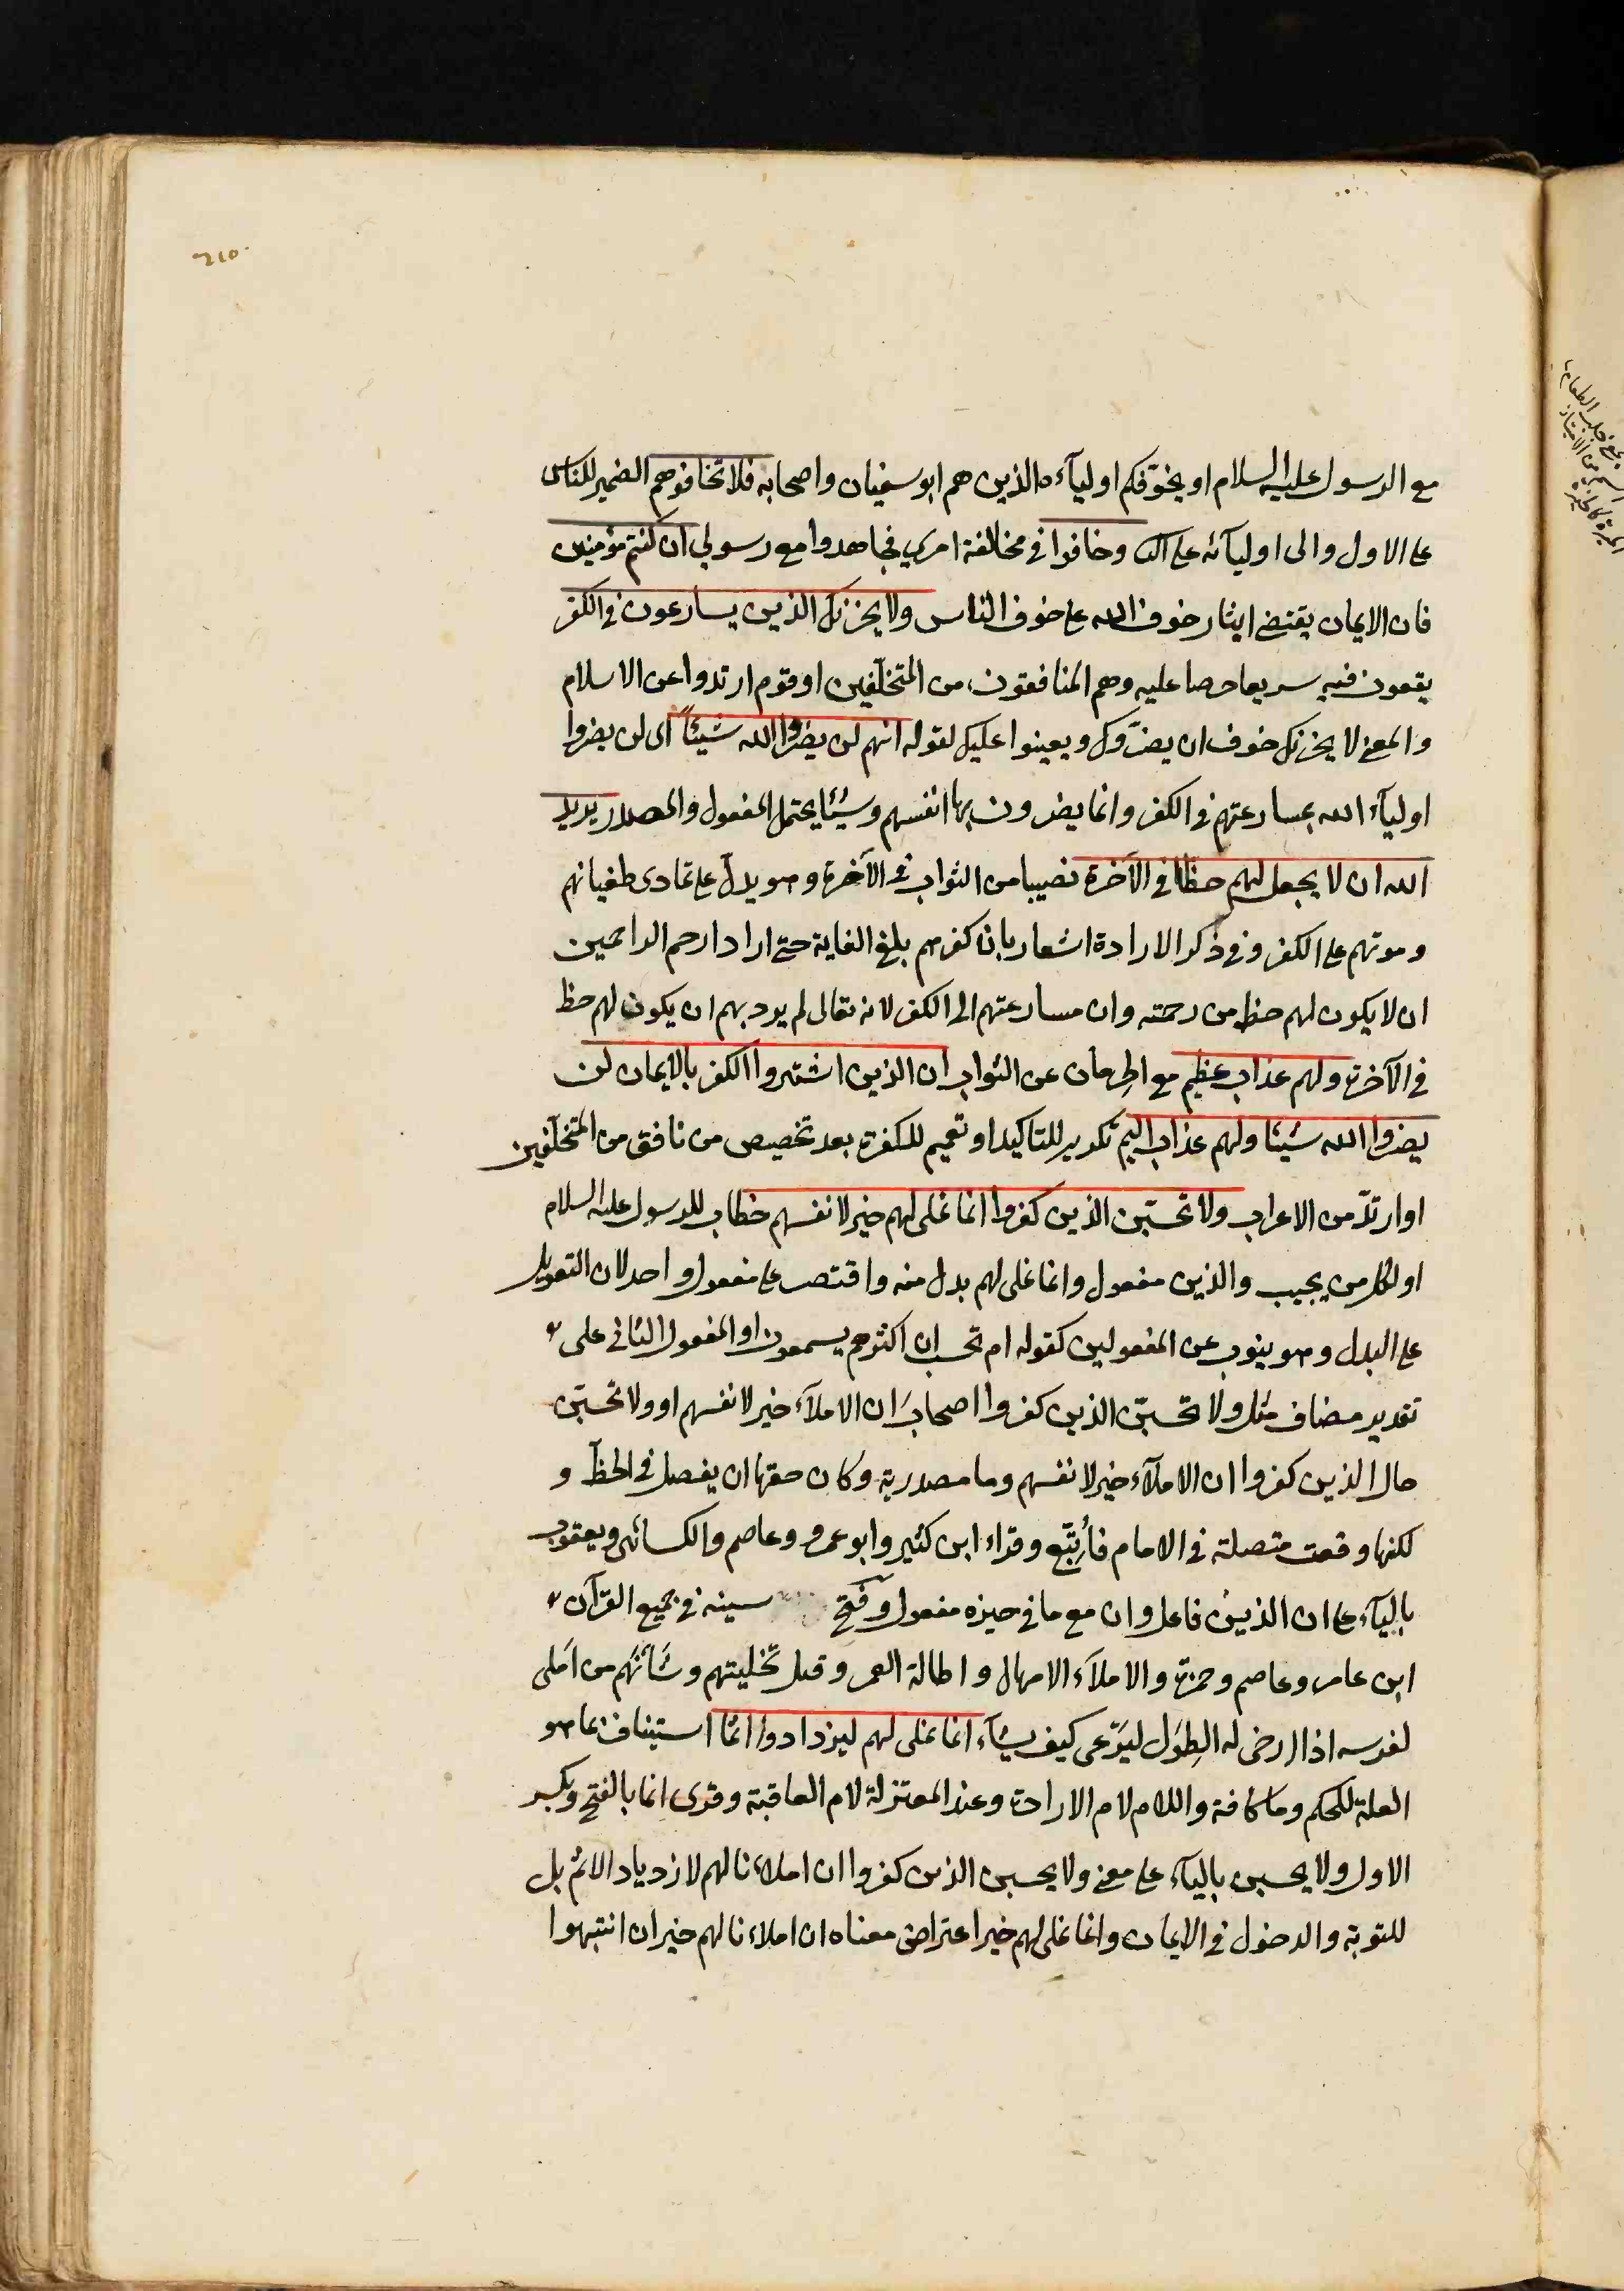 210
مع الرسول عليه السلام او يخوّفكم اوليآءه الذين هم ابو سفيان واصحابه فلا تخافوهم الضمير للناس
على الاول والى اوليآئه على الثاني وخافوا في مخالفة امري فجاهدوا مع رسولي ان كنتم مؤمنين
فان الايمان يقتضي ايثار خوف الله على خوف الناس ولا يحزنك الذين يسارعون في الكفر
يقعون فيه سريعا حرصا عليه وهم المنافقون من المتخلّفين او قوم ارتدوا عن الاسلام
والمعنى لا يحزنك خوف ان يضرّوك ويعينوا عليك لقوله انهم لن يضرّوا الله شيئاً اى لن يضروا
اوليآء الله بمسارعتهم في الكفر وانما يضرون بها انفسهم وشيئا يحتمل المفعول والمصدر يريد
الله ان لا يجعل لهم حظّا في الآخرة نصيبا من الثواب في الآخرة وهو يدلّ على تمادى طغيانهم
وموتهم على الكفر وفي ذكر الارادة اشعار بان كفرهم بلغ الغاية حتى اراد ارحم الراحمين
ان لا يكون لهم حظ من رحمته وان مسارعتهم الى الكفر لانه تعالى لم يرد بهم ان يكون لهم حظ
في الآخرة ولهم عذاب عظيم مع الحرمان عن الثواب ان الذين اشتروا الكفر بالايمان لن
يضروا الله شيئا ولهم عذاب اليم تكرير للتاكيد او تعميم للكفرة بعد تخصيص من نافق من المتخلّفين
او ارتدّ من الاعراب ولا تحسبّن الذين كفروا انما نملى لهم خير لانفسهم خطاب للرسول عليه السلام
او لكل من يحسب والذين مفعول وانما نملى لهم بدل منه واقتصر على مفعول واحد لان التعويل
على البدل وهو ينوب عن المفعولين كقوله ام تحسب ان اكثرهم يسمعون او المفعول الثاني على
تقدير مضاف مثل ولا تحسبّن الذين كفروا اصحابَ ان الاملآء خير لانفسهم او ولا تحسبّن
حال الذين كفروا ان الاملآء خير لانفسهم وما مصدرية وكان حقها ان يفصل في الخطّ و
لكنها وقعت متصلة في الامام فاُتّبع وقراء ابن كثير وابو عمرو وعاصم والكسائى ويعقوب
باليآء على ان الذين فاعل وان مع ما في حيزه مفعول وفَتَح سينه في جميع القرآن
ابن عامر وعاصم وحمزة والاملآء الامهال واطالة العمر وقيل تخليتهم وشأنَهم من اَملى
لفرسه اذا ارخى له الطِوَل ليَرْعى كيف يشآء انما نملى لهم ليزدادوا اثما استيناف بما هو
العلة للحكم وما كافة واللام لام الارادة وعند المعتزلة لام العاقبة وقرى انما بالفتح وبكسر
الاول ولا يحسبن باليآء على معنى ولا يحسبن الذين كفروا ان املاءنا لهم لازدياد الاثم بل
للتوبة والدخول في الايمان وانما نملى لهم خير اعتراض معناه ان املاءنا لهم خير ان انتبهوا